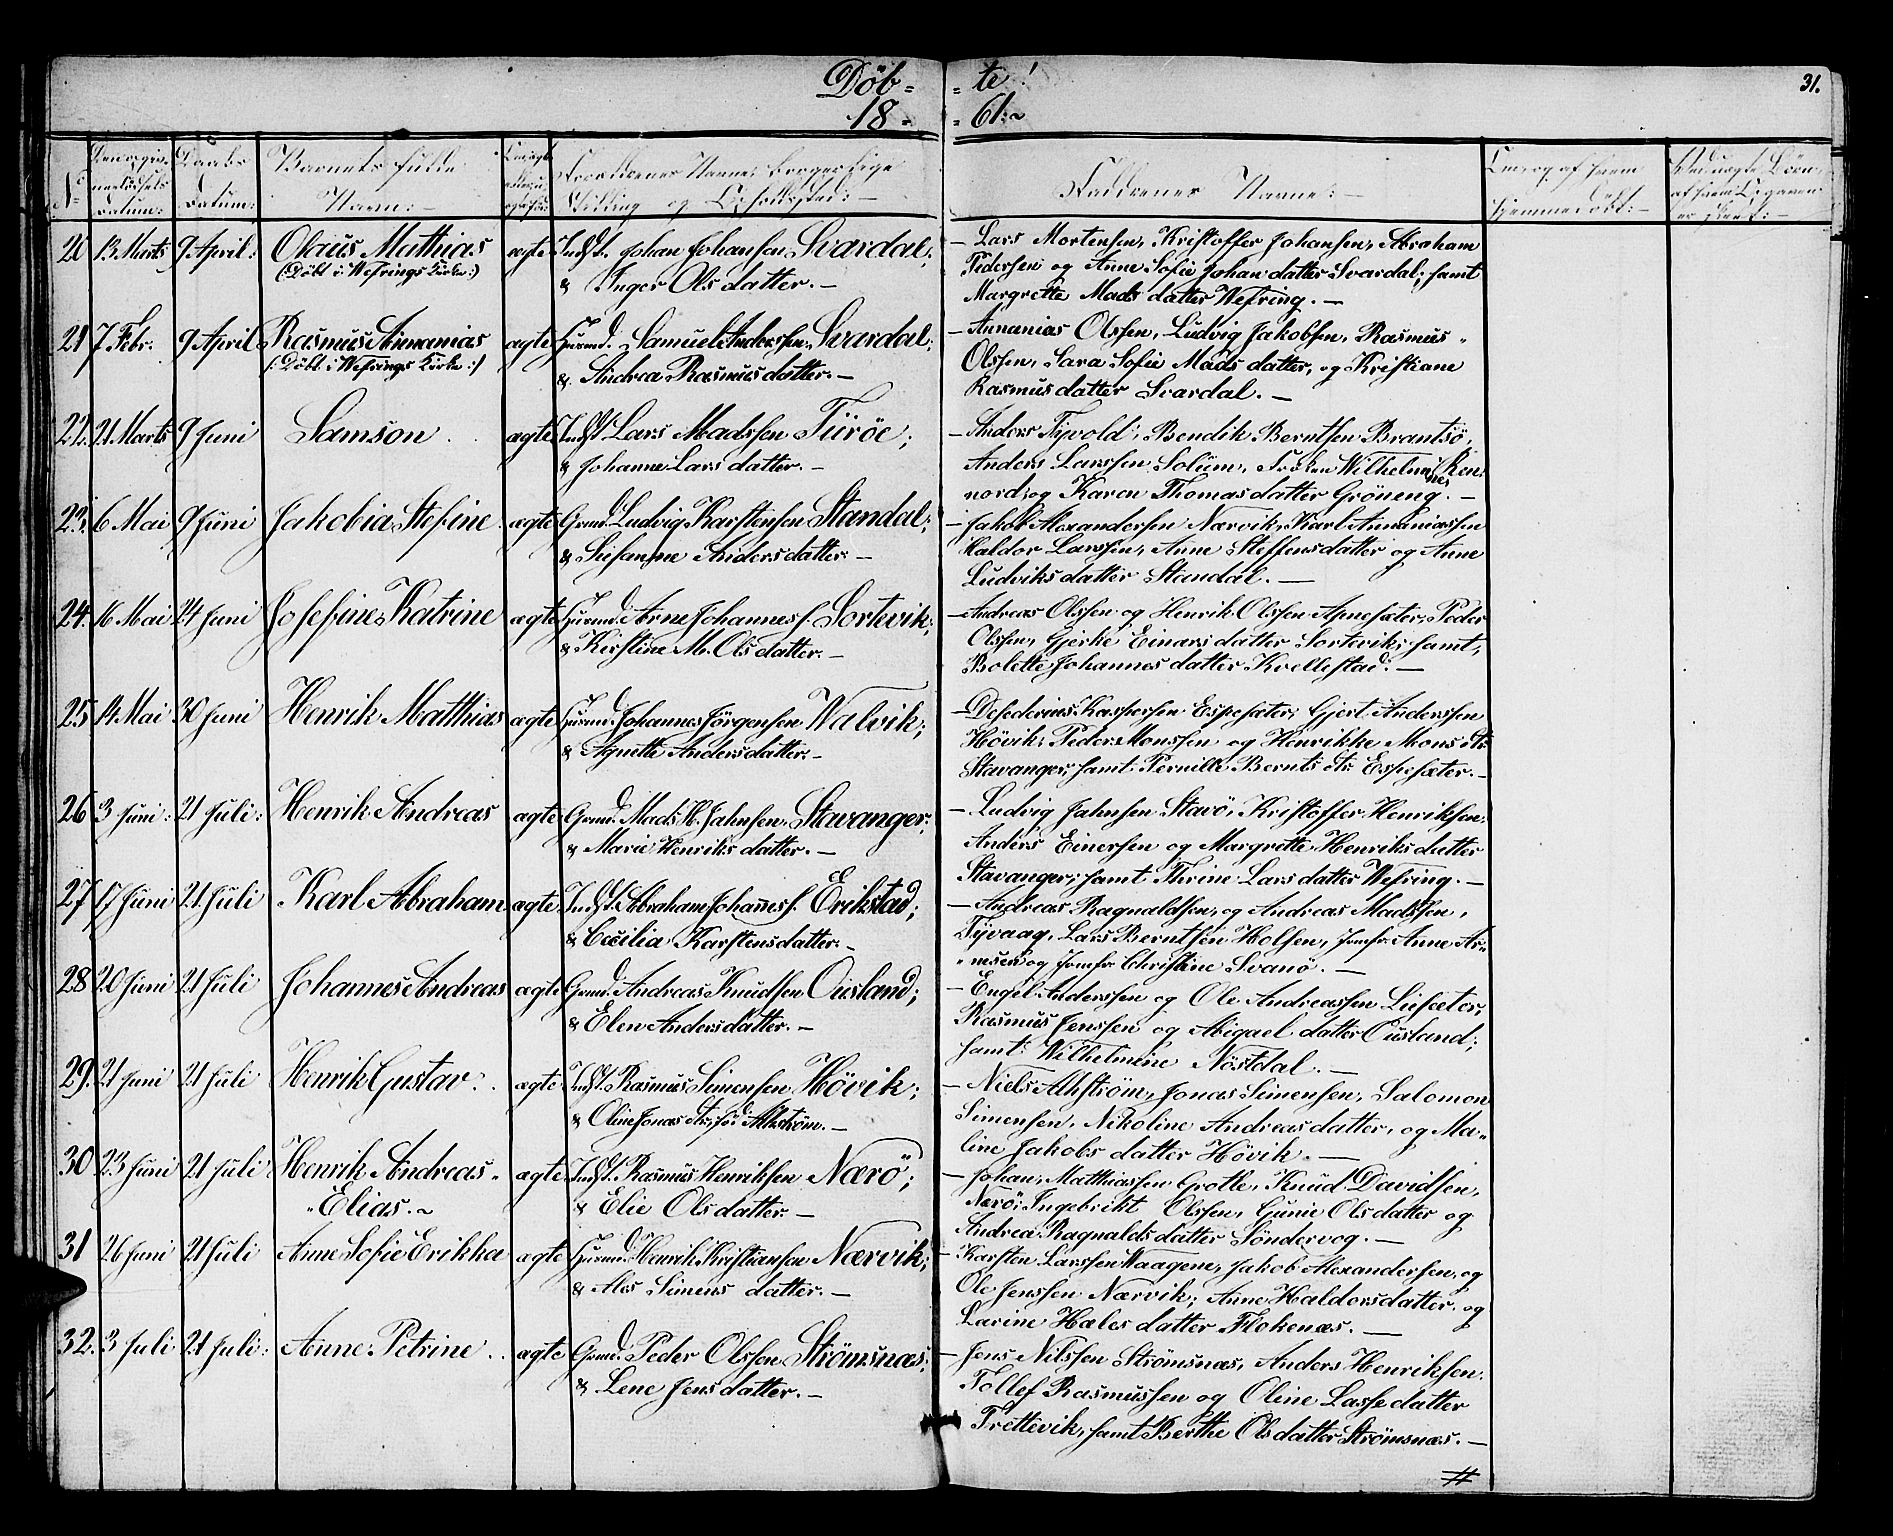 Döb- -te!
18- -61:~
31.
No
Barnets fulde Navn:-
Faddernes Navne:-
20 13 Marts 9 April: Olaus Mathias ægte Indst. Johan Johansen Svardal;
(:Döbt i Wefrings Kirke:) & Inger Olsdatter.-
- Lars Mortensen, Kristoffer Johansen, Abraham
Pedersen og Anne Sofie Johandatter Svardal; samt
Margrette Madsdatter Wefring.-
21 7 Febr. 9 April Rasmus Annanias ægte Gaard. Samuel Anderssen Svardal;
(:Döbt i Wefrings Kirke:) & Andrea Rasmusdatter.-
- Annanias Olssen, Ludvig Jakobsen, Rasmus
Olssen, Sara Sofie Madsdatter, og Kristiane
Rasmusdatter Svardal.-
22. 21 Marts 9 Juni Samson ægte Indst Lars Madssen Türöe;
& Johanne Larsdatter.-
- Anders Tyvold; Bendik Berntsen Brantsö,
Anders Larssen Solüm, Fröken Wilhelmine Ken-
nord, og Karen Thomasdatter Gröneng.-
23. 6 Mai 9 Juni Jakobia Stefine ægte Grmd. Ludvig Karstensen Standal;
& Stefanne Andersdatter.-
- Jakob Alexandersen Nærvik, Karl Annaniassen
Haldor Larssen, Anne Steffensdatter og Anne
Ludviksdatter Standal.-
24. 16 Mai 24 Juni Josefine Katrine ægte Huusmd. Arne Johanness. Sortevik;
& Kirstine M. Olsdatter.-
- Andreas Olssen og Henrik Olssen Apnesæter, Peder
Olssen, Gjerke Einarsdatter Sortevik; samt,
Bolette Johannesdatter Kvellestad.-
25 14 Mai 30 Juni Henrik Matthias ægte Huusmd. Johannes Jörgensen Walvik;
& Agnette Andersdatter.-
- Desederius Kaspersen Espesæter; Gjert Anderssen
Hövik; Peder Monssen og Henrikke Monsdtr
Stavanger; samt Pernille Berntsdtr Espesæter.-
26 3 Juni: 21 Juli: Henrik Andreas ægte Grmd. Mads H. Jahnsen, Stavanger;
& Marie Henriksdatter.-
- Ludvig Jahnsen Starö, Kristoffer Henriksen,
Anders Einersen og Margrette Henriksdatter
Stavanger; samt Thrine Larsdatter Wefring.-
27 17 Juni 21 Juli Karl Abraham ægte Indst. Abraham Johanness. Erikstad;
& Cecilia Karstensdatter.-
- Andreas Ragnaldsen, og Andreas Madssen,
Tyvaag, Lars Berntsen Holsen, Jomfr. Anne Ar-
nesen og Jomfr. Christine Svanö.-
28 20 Juni 21 Juli Johannes Andreas ægte Grmd. Andreas Knudsen Ousland;
& Elen Andersdatter.-
- Engel Anderssen og Ole Andreassen Liesæter,
Rasmus Jenssen og Abigael datter Ousland;
samt Wilhelmine Nöstdal.-
29. 21 Juni 21 Juli Henrik Gustav. ægte Indst. Rasmus Simensen Hövik;
& Oline Jonasdtr; föd Alhström.-
- Niels Alhström, Jonas Simensen, Salomon
Simensen, Nikoline Andreasdatter, og Ma-
line Jakobsdatter Hövik.-
30 23 Juni 21 Juli Henrik Andreas- ægte Indst. Rasmus Henriksen Nærö;
-Elias.~ & Elie Olsdatter-
- Johan, Matthiassen Grotle, Knud Davidsen,
Nærö; Ingebrikt Olssen, Gunie Olsdatter og
Andrea Ragnaldsdatter Söndervog.-
31 26 Juni 21 Juli Anne Sofie Erikka ægte Huusmd. Henrik Kristiansen Nærvik;
& Ales Simensdatter.-
- Karsten Larssen Waagene, Jakob Alexandersen, og
Ole Jenssen Nærvik; Anne Haldorsdatter. og
Larine Halesdatter Flokenæs.-
32. 3 Juli 21 Juli: Anne Petrine ægte Grmd. Peder Olssen Strömsnæs;
& Lene Jensdatter.-
- Jens Nilssen Strömsnæs, Anders Henriksen,
Tollef Rasmussen og Oline Lassedatter
Trettevik, samt Berthe Olsdatter Strömsnæs.-
#